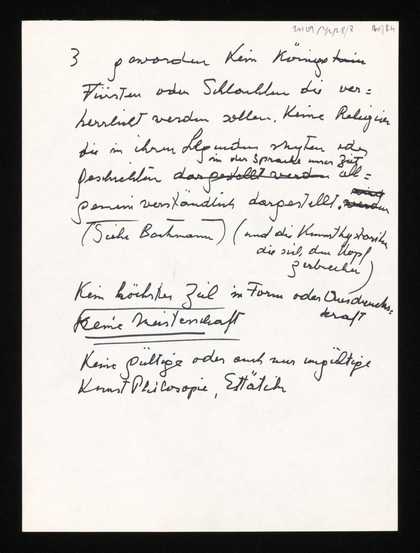 3 geworden Kein Königstum
Fürsten oder Schlachten die ver=
herrlicht werden sollen. Keine Religion
die in ihren Legenden Mythen oder
in der Sprache einer Zeit
Geschichten dargestellt werden all=
gemein verständlich dargestellt.
(Siehe Bachmann) (und die Kunsthistoriker
die sich den Kopf
zerbrechen)
Kein höchstes Ziel in Form oder Ausdrucks=
kraft
Keine Meisterschaft
Keine gültige oder auch nur ungültige
Kunst Philosopie, Estätik